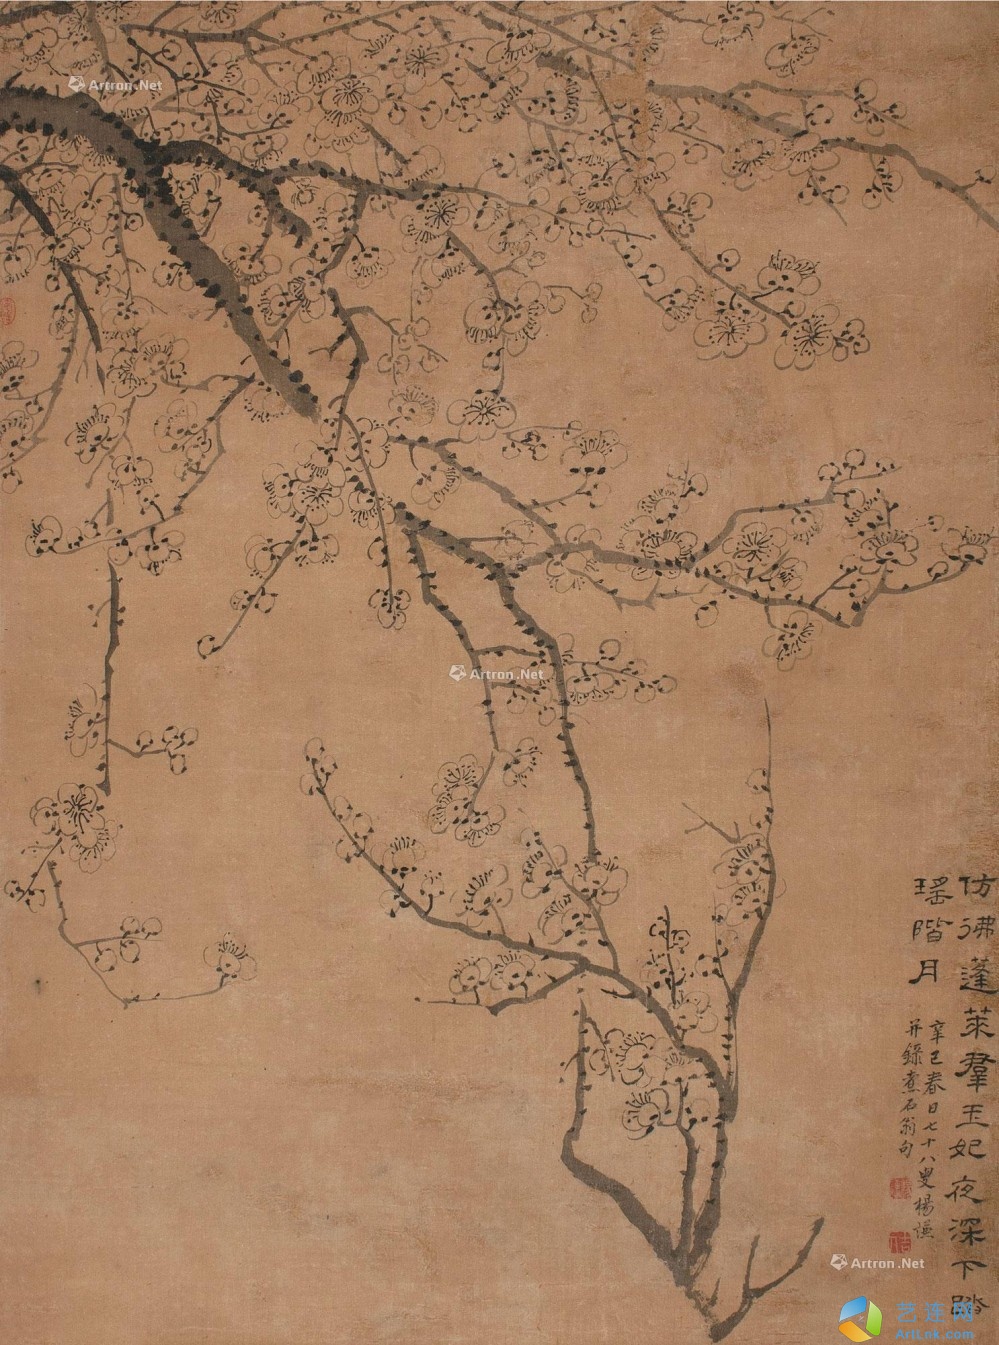 仿彿蓬萊羣玉妃夜深下踏
瑤階月
辛巳春日七十八叟楊謙
并錄煮石翁句
Artron.Net
Artron.Net
Artron.Net
艺连网
ArtLnk.com